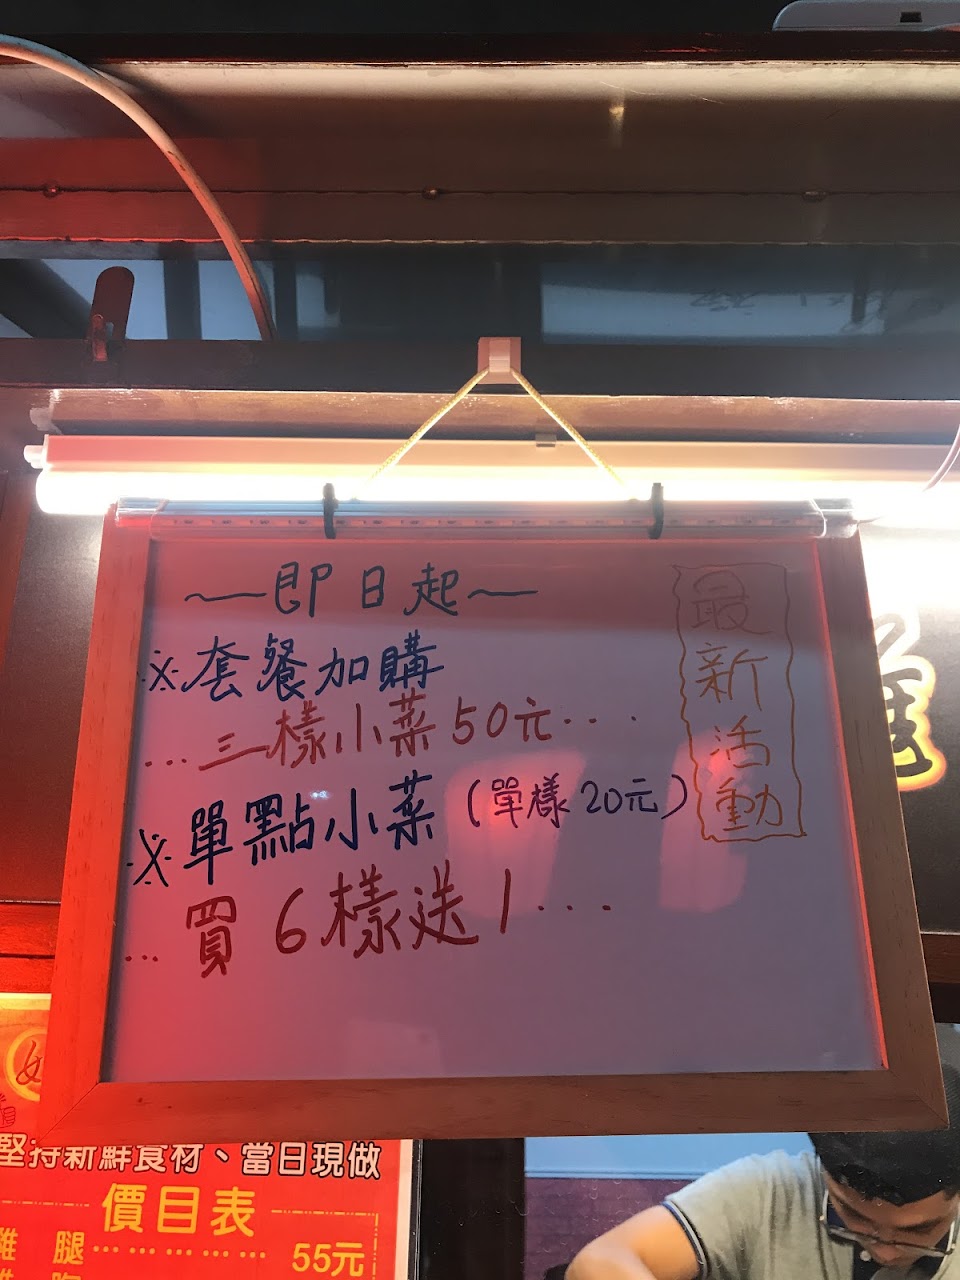 ～即日起～
最新活動
※套餐加購
...三樣小菜50元....
※單點小菜(單樣20元)
...買6樣送1....
堅持新鮮食材、當日現做
價目表
雞腿 55元